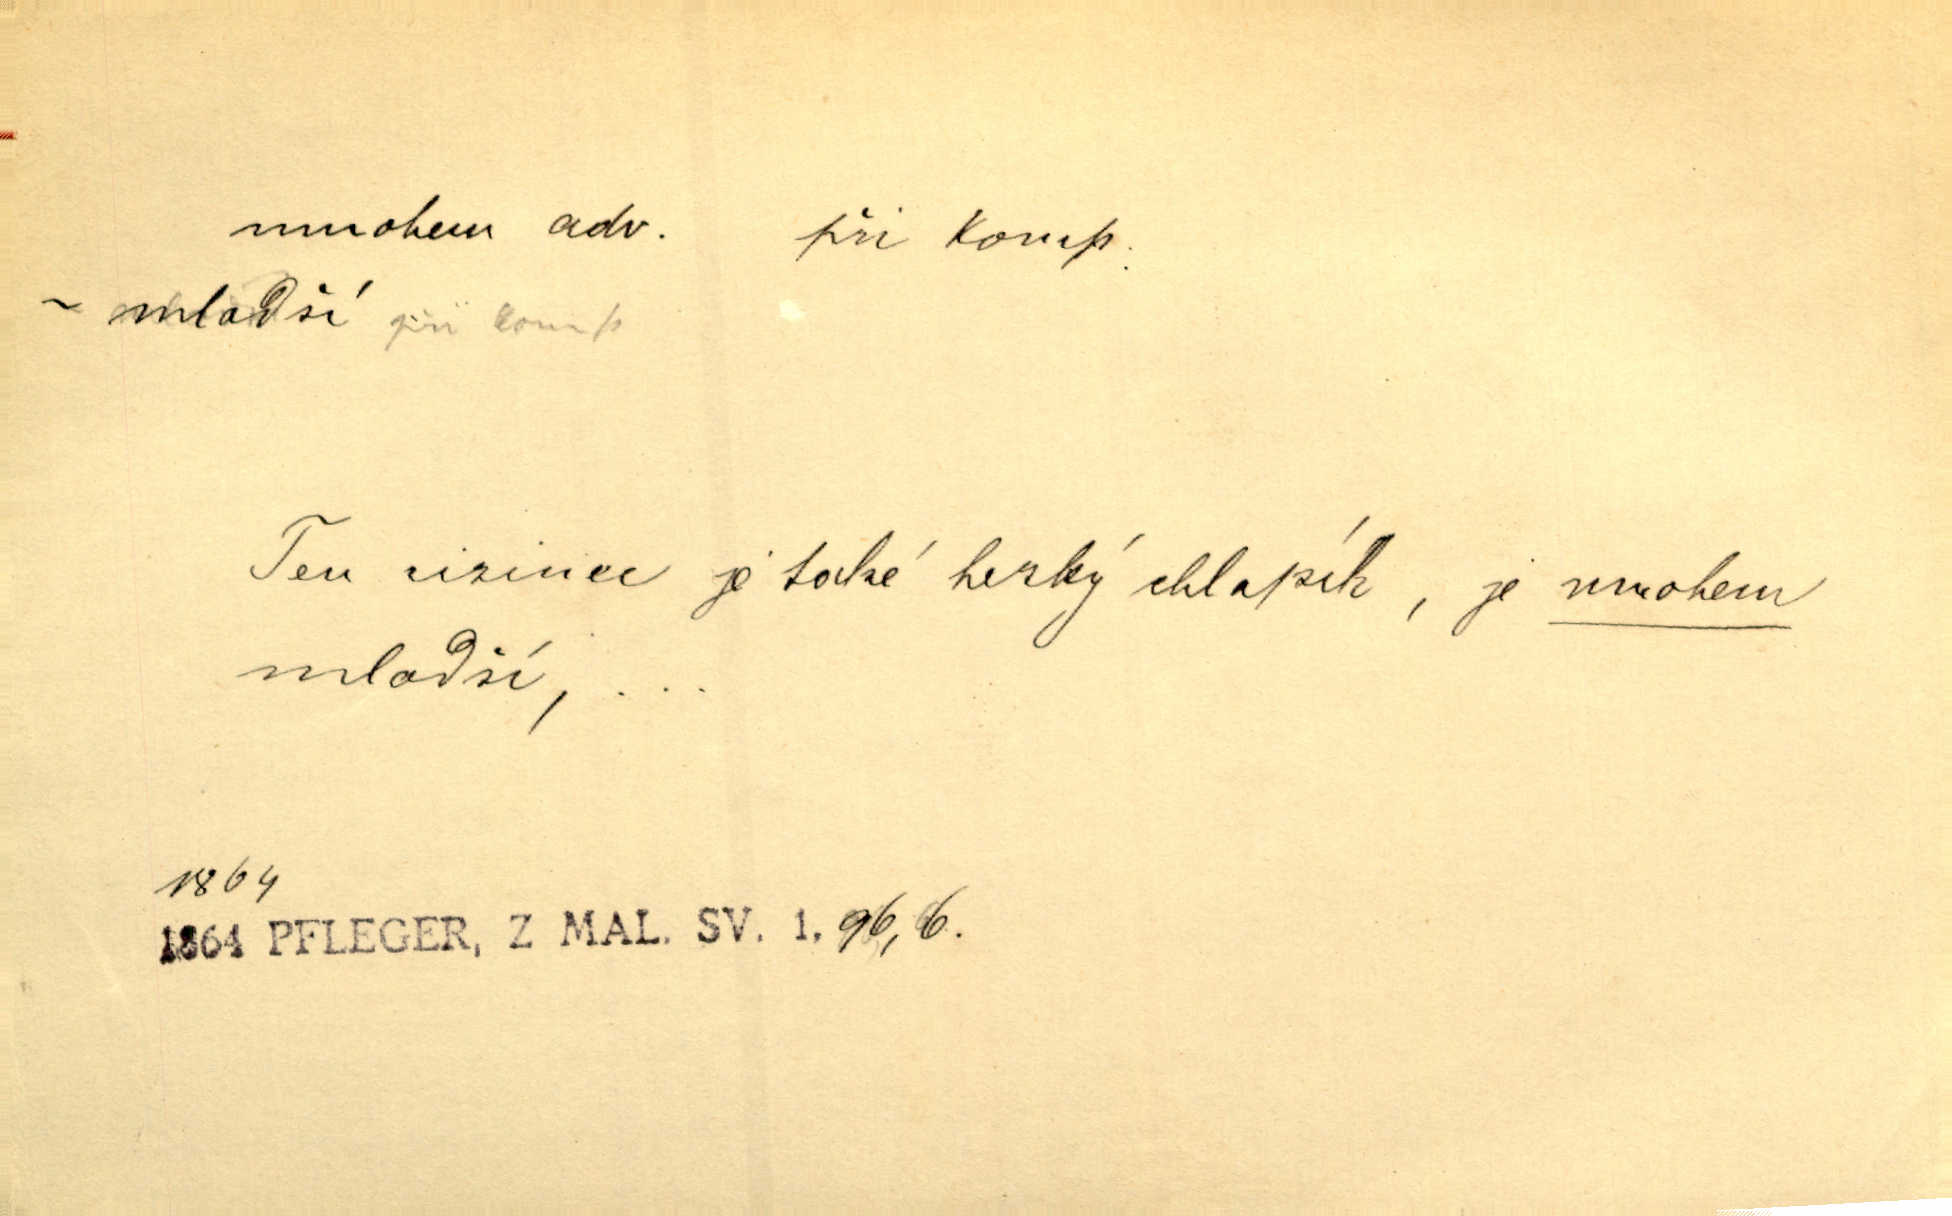 mnohem adv. při komp.
~ mladší při komp
Ten cizinec je také hezký chlapík, je mnohem
mladší, ...
1864
1864 PFLEGER, Z MAL. SV. 1. 96, 6.